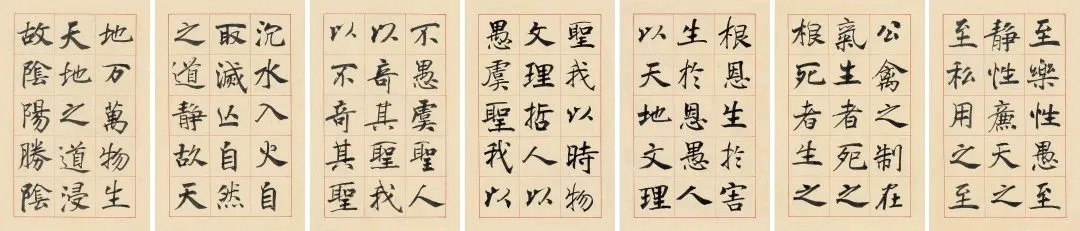 至樂性愚至
静性廉天之
至私用之至
公禽之制在
氣生者死之
根死者生之
根恩生於害
生於恩愚人
以天地文理
聖我以時物
文理哲人以
愚虞聖我以
不愚虞聖人
以奇其聖我
以不奇其聖
沉水入火自
取滅亾自然
之道静故天
地万萬物生
天地之道浸
故陰陽勝陰